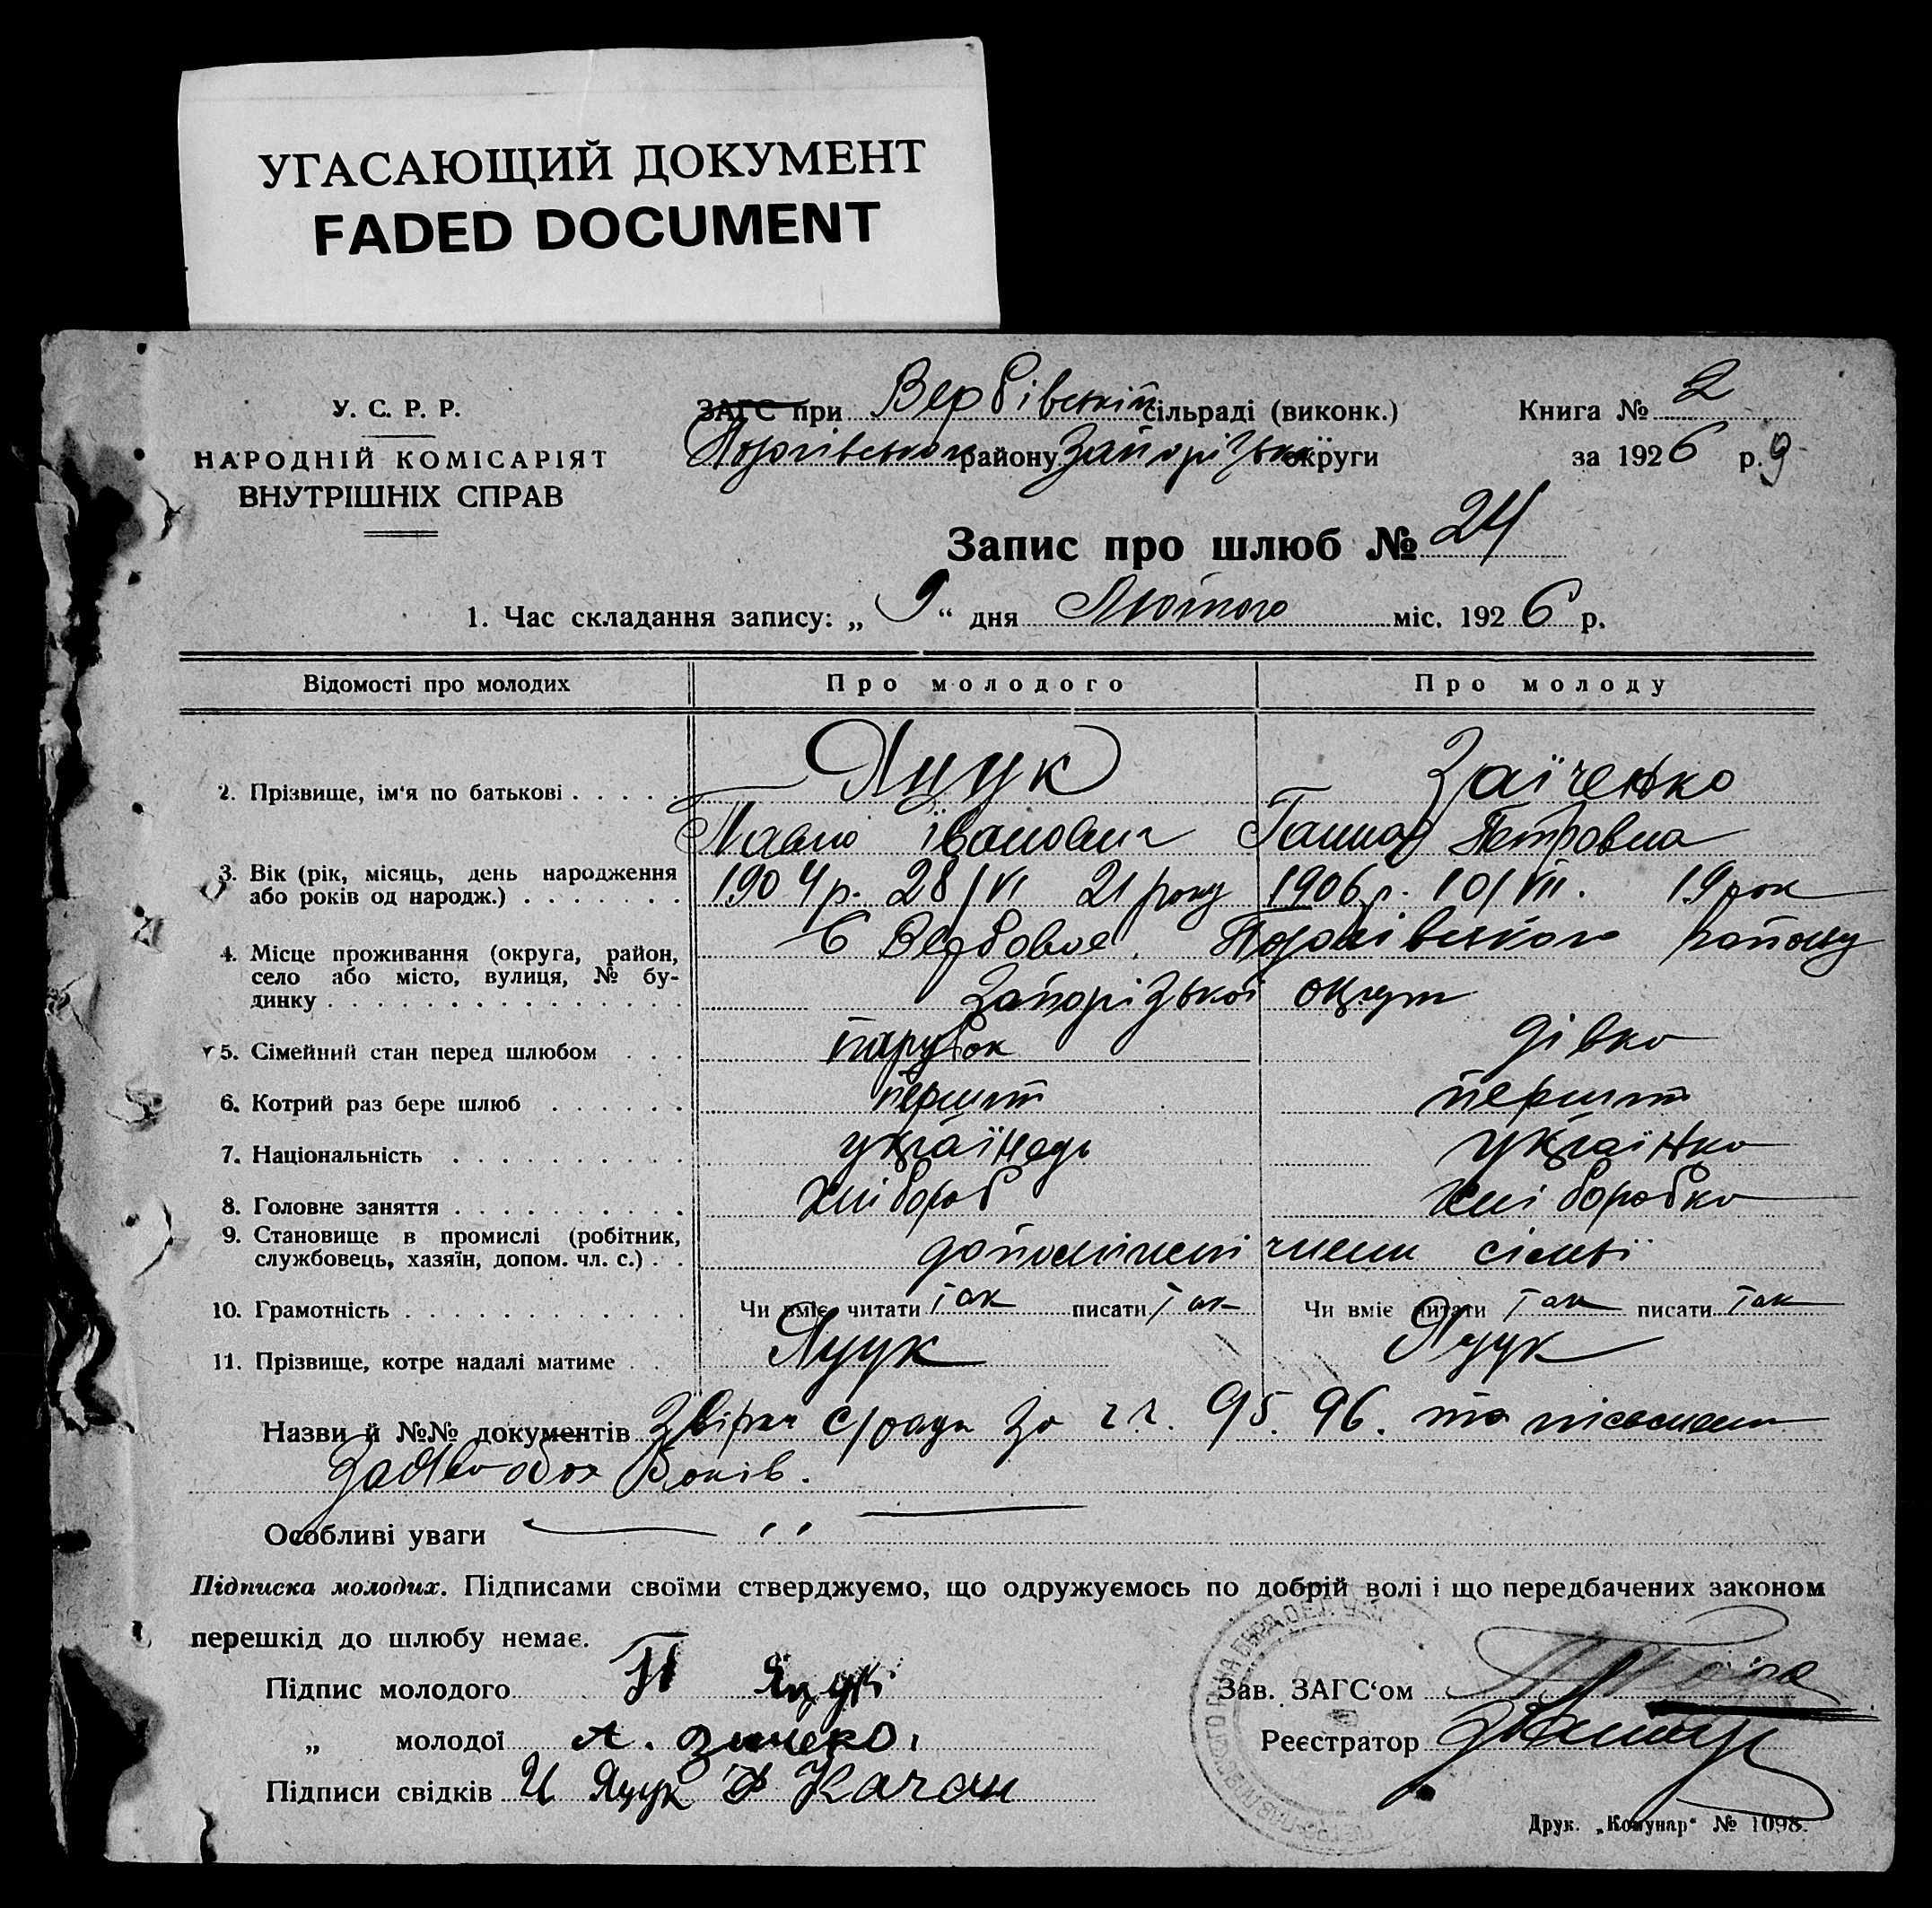 УГАСАЮЩИЙ ДОКУМЕНТ
FADED DOCUMENT
У. С. Р. Р.
НАРОДНІЙ КОМІСАРІЯТ
ВНУТРІШНІХ СПРАВ
ЗАГС при Вербівській сільраді (виконк.)
району Запорізької округи
Книга № 2
за 1926 р. 9
Запис про шлюб № 24
1. Час складання запису: „ 9 “ дня Лютого міс. 1926 р.
Відомості про молодих Про молодого Про молоду
2. Прізвище, ім'я по батькові . . . . . Яцук Заїченко
Павло Іванович Ганна Петровна
3. Вік (рік, місяць, день народження
або років од народж.) . . . . . . . 1904 р. 28/VI 21 року 1906 р. 10/VII. 19 рок
4. Місце проживання (округа, район,
село або місто, вулиця, № бу-
динку . . . . . . . . . . . . . . . .
С Вербовое. району
Запорізької округи
5. Сімейний стан перед шлюбом . . . парубок дівка
6. Котрий раз бере шлюб . . . . . . перший перший
7. Національність . . . . . . . . . . українець українка
8. Головне заняття . . . . . . . . . . хлібороб хліборобка
9. Становище в промислі (робітник,
службовець, хазяїн, допом. чл. с.) . . члени сімьї
10. Грамотність . . . . . . . . . . . . Чи вміє читати так писати так Чи вміє читати так писати так
11. Прізвище, котре надалі матиме . . Яцук Яцук
Назви й №№ документів с/ради за 95. 96. та
обох років.
Особливі уваги
Підписка молодих. Підписами своїми стверджуємо, що одружуємось по добрій волі і що передбачених законом
перешкід до шлюбу немає.
Підпис молодого П Яцук
„ молодої
Підписи свідків И Яцук Качан
Зав. ЗАГС'ом
Реєстратор
Друк. „Комунар“ № 1098.